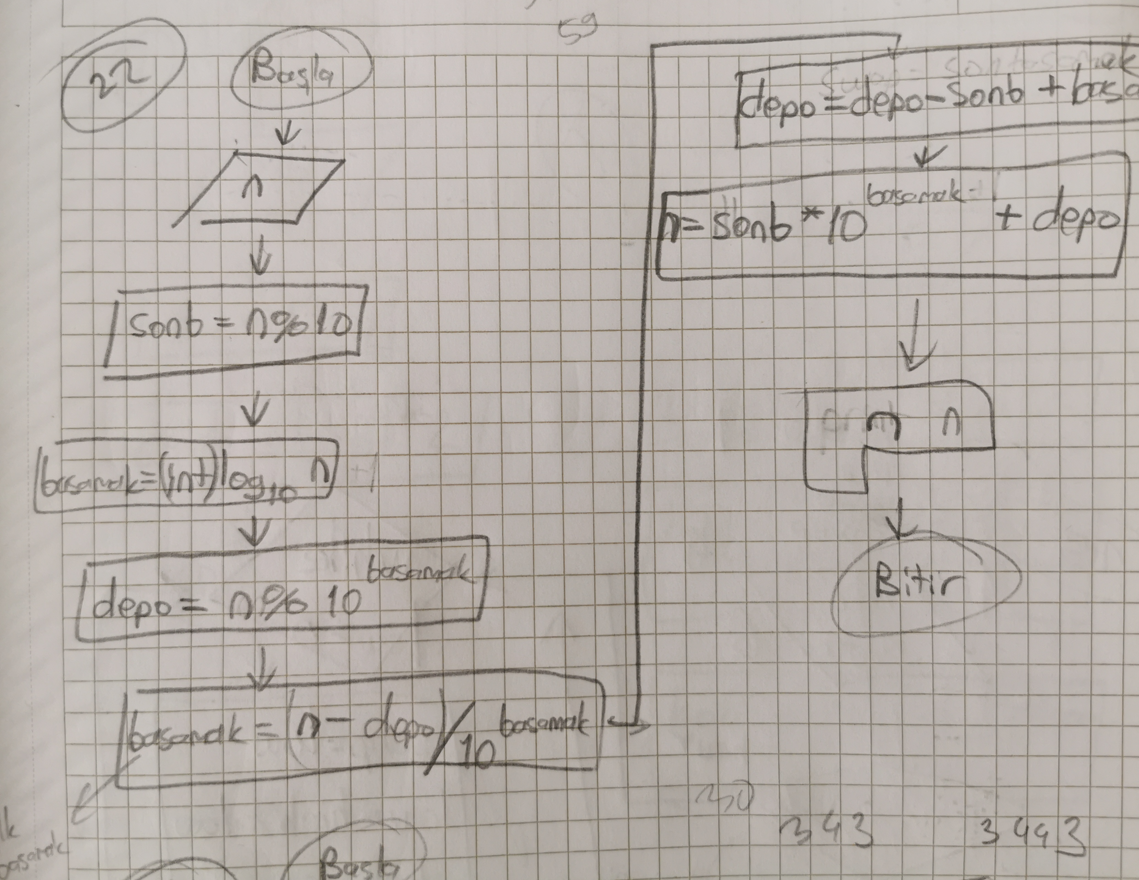 59
22
Başla
n
sonb = n%10
basamak=(int)log10 n
depo = n% 10^basamak
basamak = (n - depo)/10^basamak
depo=depo-sonb +basa
n= sonb *10^basamak- + depo
n
Bitir
30
343
3443
Başla
basamak